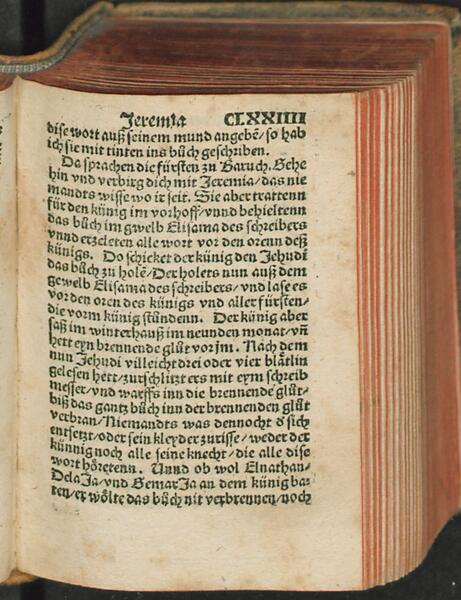 Jeremia CLXXIIII
dise wort auß seinem mund angebē/ so hab
ich sie mit tinten ins bůch geschriben.
Da sprachen die fürsten zu Baruch. Gehe
hin vnd verbirg dich mit Jeremia/ das nie
mandts wisse wo ir seit. Sie aber trattenn
für den künig im vorhoff/ vnnd behieltenn
das bůch im gwelb Elisama des schreibers
vnnd erzeleten alle wort vor den orenn deß
künigs. Do schicket der künig den Jehudi
das bůch zu holē/ Der holets nun auß dem
gewelb Elisama des schreibers/ vnd lase es
vor den oren des künigs vnd aller fürsten/
die vorm künig stůndenn. Der künig aber
saß im winterhauß im neunden monat/ vñ
hett eyn brennende glůt vor jm. Nach dem
nun Jehudi villeicht drei oder vier blätlin
gelesen hett/ zurschlitzt ers mit eym schreib
messer/ vnd warffs inn die brennende glůt/
biß das gantz bůch inn der brennenden glůt
verbran/ Niemandts was dennocht d sich
entsetzt/ oder sein kleyder zurisse/ weder der
künnig noch alle seine knecht/ die alle dise
wort höretenn. Unnd ob wol Elnathan/
DelaJa/ vnd GemarJa an dem künig ba/
ten/ er wölte das bůch nit verbrennen/ noch